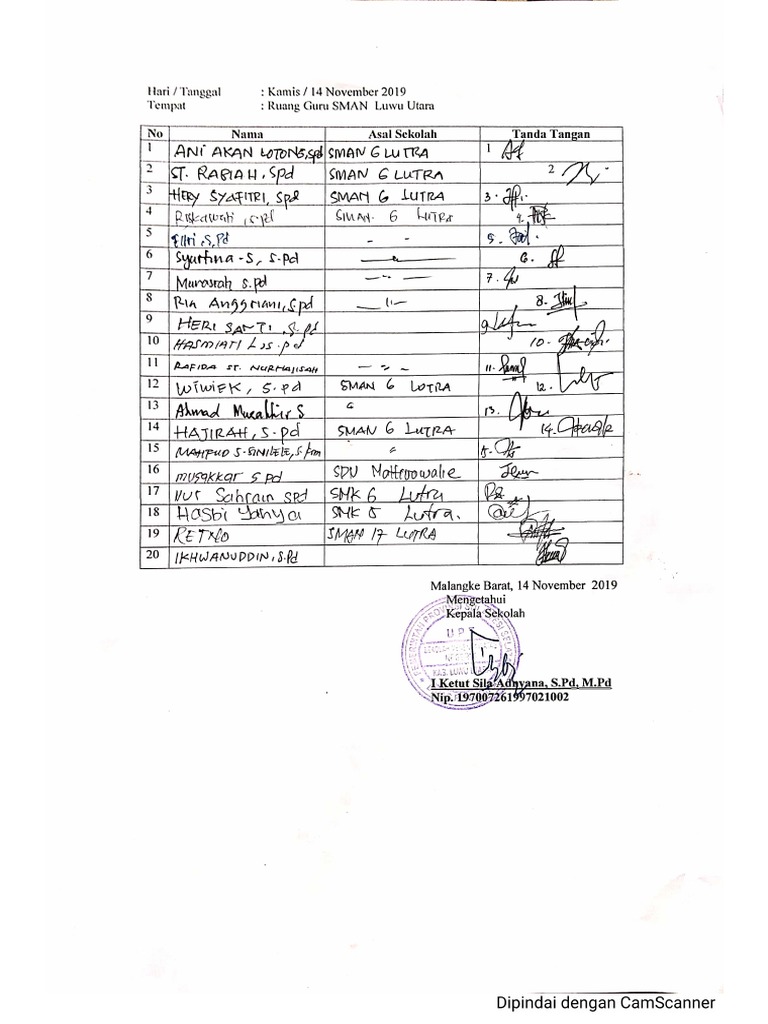 Hari / Tanggal : Kamis / 14 November 2019
Tempat : Ruang Guru SMAN Luwu Utara
No Nama Asal Sekolah Tanda Tangan
1 ANI AKAN LOTONG, Spd SMAN 6 LUTRA 1
2 ST. RABIAH, Spd SMAN 6 LUTRA 2
3 HERY SYAFITRI, Spd SMAN 6 LUTRA 3.
4 Riskawati, S.pd SMAN 6 LUTRA 4.
5 Fitri, S.Pd - - 5.
6 Syurfina - S, S.pd 6.
7 Munasrah S.pd 7.
8 RIA Anggriani, S.pd - 11 - 8.
9 HERI SANTI, S.pd 9.
10 HASMIATI L, S.pd 10.
11 RAFIDA ST. NURHAJISAH 11.
12 WIWIEK, S.pd SMAN 6 LUTRA 12.
13 Ahmad Muzakkir S " 13.
14 HAJIRAH, S.pd SMAN 6 LUTRA 14.
15 MAHFUD S " 15.
16 MUSAKKAR S.pd SDN
17 NUR Sahrain SPd SMK 6 Lutra
18 Hasbi Yahya SMK 5 Lutra.
19 RETNO SMAN 17 LUTRA
20 IKHWANUDDIN, S.Pd
Malangke Barat, 14 November 2019
Mengetahui
Kepala Sekolah
UPT
I Ketut Sila Adnyana, S.Pd, M.Pd
Nip. 197007261997021002
Dipindai dengan CamScanner